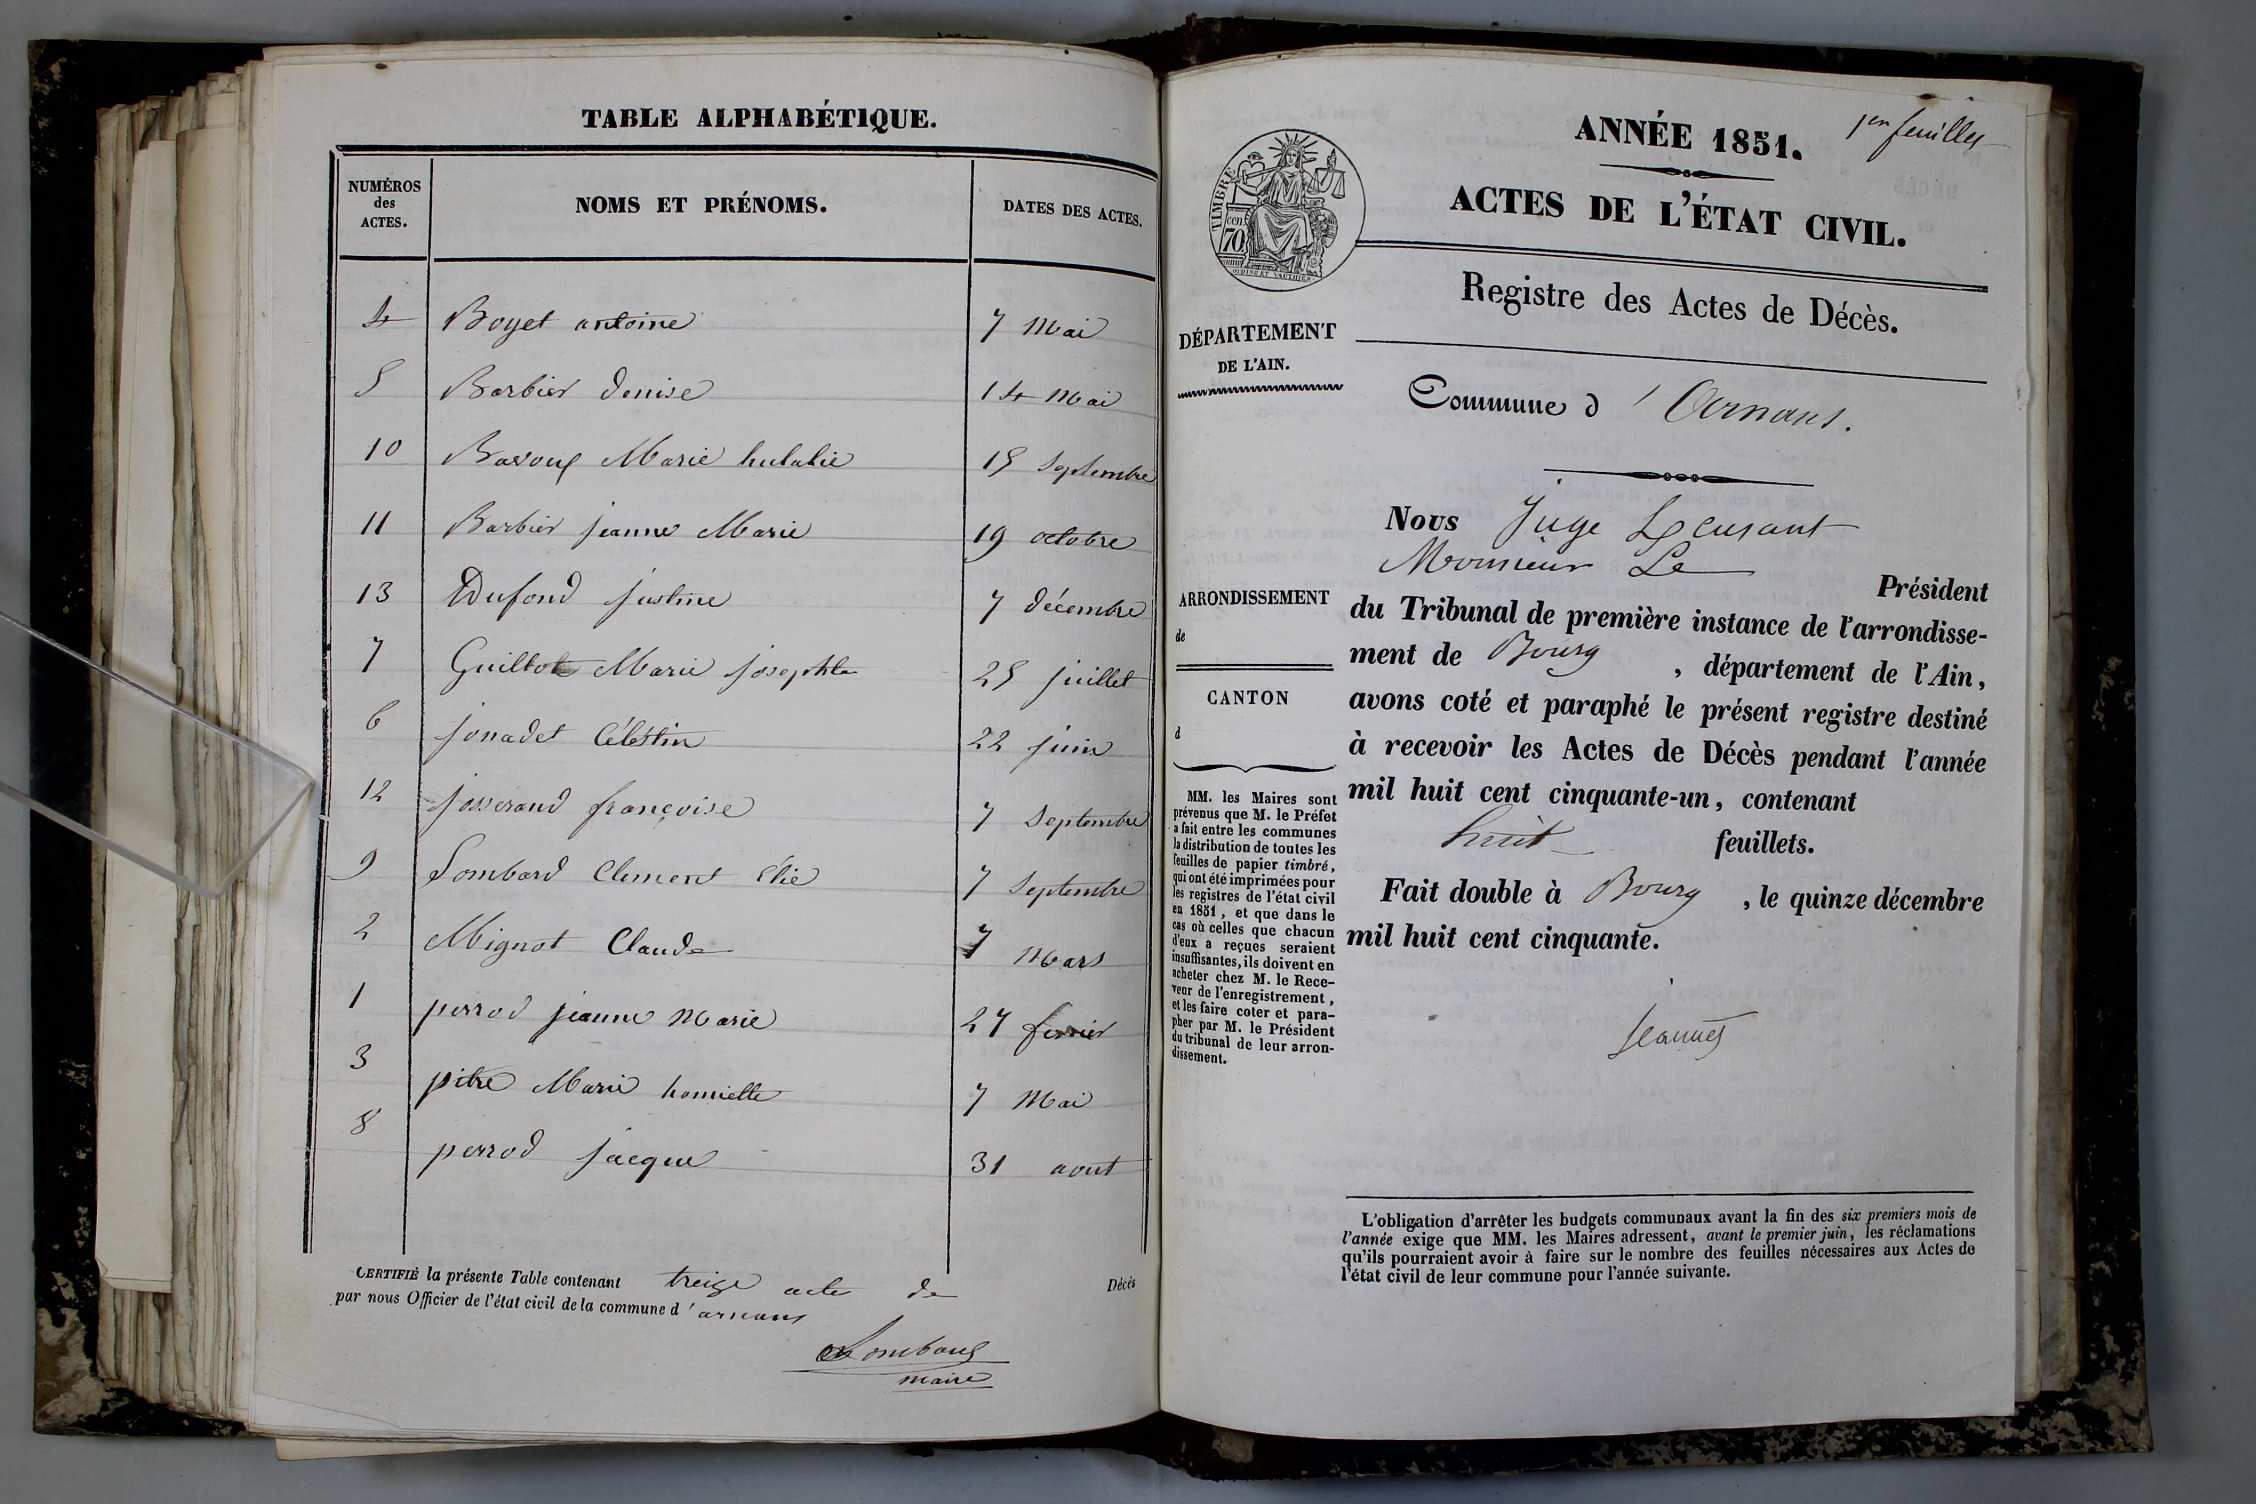 TABLE ALPHABÉTIQUE.
NUMÉROS des ACTES. NOMS ET PRÉNOMS. DATES DES ACTES.
4 Boyet antoine 7 Mai
5 Barbier denise 14 Mai
10 Bavoux Marie hulalie 15 Septembre
11 Barbier jeanne Marie 19 octobre
13 Dufond justine 7 décembre
7 Guillot Marie josephte 25 juillet
6 jonadet Célestin 22 juin
12 josserand françoise 7 Septembre
9 Lombard Clement élie 7 Septembre
2 Mignot Claude 7 Mars
1 perrod jeanne Marie 27 fevrier
3 pitre Marie henriette 7 Mai
8 perrod jacque 31 aout
CERTIFIÉ la présente Table contenant treize acte de Décès
par nous Officier de l'état civil de la commune d'arnans
Lombard
maire
1er feuillet
ANNÉE 1851.
ACTES DE L'ÉTAT CIVIL.
TIMBRE
70
Registre des Actes de Décès.
DÉPARTEMENT
DE L'AIN.
Commune d'Arnans.
ARRONDISSEMENT
de
CANTON
d
MM. les Maires sont
prévenus que M. le Préfet
a fait entre les communes
la distribution de toutes les
feuilles de papier timbré,
qui ont été imprimées pour
les registres de l'état civil
en 1851, et que dans le
cas où celles que chacun
d'eux a reçues seraient
insuffisantes, ils doivent en
acheter chez M. le Rece-
veur de l'enregistrement,
et les faire coter et para-
pher par M. le Président
du tribunal de leur arron-
dissement.
NOUS Juge
Monsieur Le Président
du Tribunal de première instance de l'arrondisse-
ment de Bourg, département de l'Ain,
avons coté et paraphé le présent registre destiné
à recevoir les Actes de Décès pendant l'année
mil huit cent cinquante-un, contenant
huit feuillets.
Fait double à Bourg, le quinze décembre
mil huit cent cinquante.
L'obligation d'arrêter les budgets communaux avant la fin des six premiers mois de
l'année exige que MM. les Maires adressent, avant le premier juin, les réclamations
qu'ils pourraient avoir à faire sur le nombre des feuilles nécessaires aux Actes de
l'état civil de leur commune pour l'année suivante.